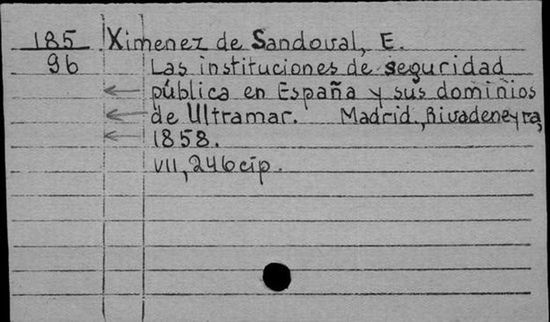 185 Ximenez de Sandoval, E.
96 Las instituciones de seguridad
pública en España y sus dominios
de Ultramar. Madrid, Rivadeneyra,
1858.
VII, 246 cip.